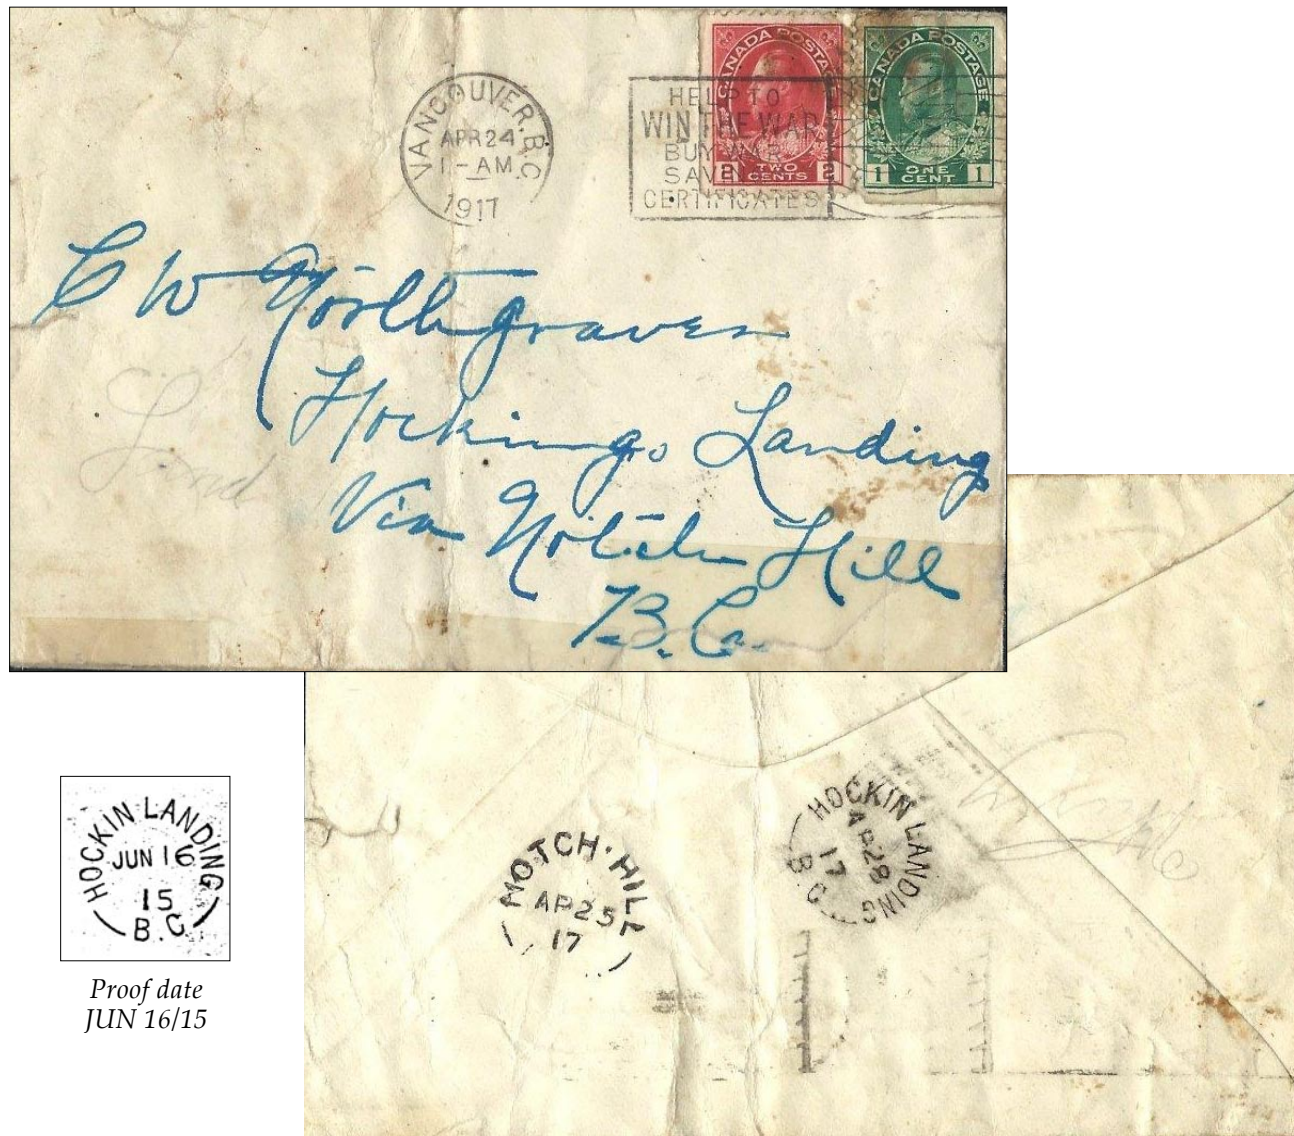 VANCOUVER. B.C.
APR 24
1 - AM
1917
HELP TO
WIN THE WAR
BUY WAR
SAVINGS
CERTIFICATES
CANADA POSTAGE
2 TWO CENTS 2
CANADA POSTAGE
1 ONE CENT 1
C W Northgraves
Hocking Landing
Via Notch Hill
B.C.
Land
HOCKIN LANDING
JUN 16
15
B.C.
Proof date
JUN 16/15
NOTCH · HILL
AP 25
17
HOCKIN LANDING
AP 28
17
B.C.